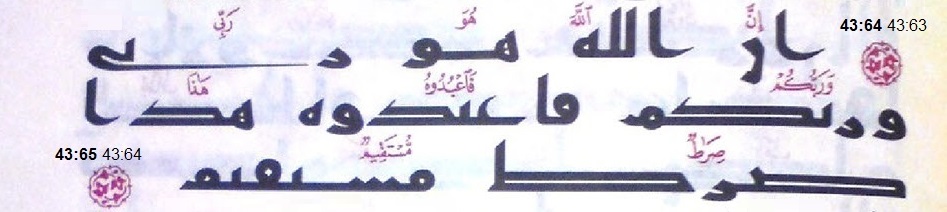 43:64 43:63
إِنَّ ٱللَّهَ هُوَ رَبِّى
ان الله هو ربى
وَرَبُّكُمْ فَٱعْبُدُوهُ هَٰذَا
وربكم فاعبدوه هذا
صِرَٰطٌ مُّسْتَقِيمٌ
43:65 43:64
صرط مستقيم